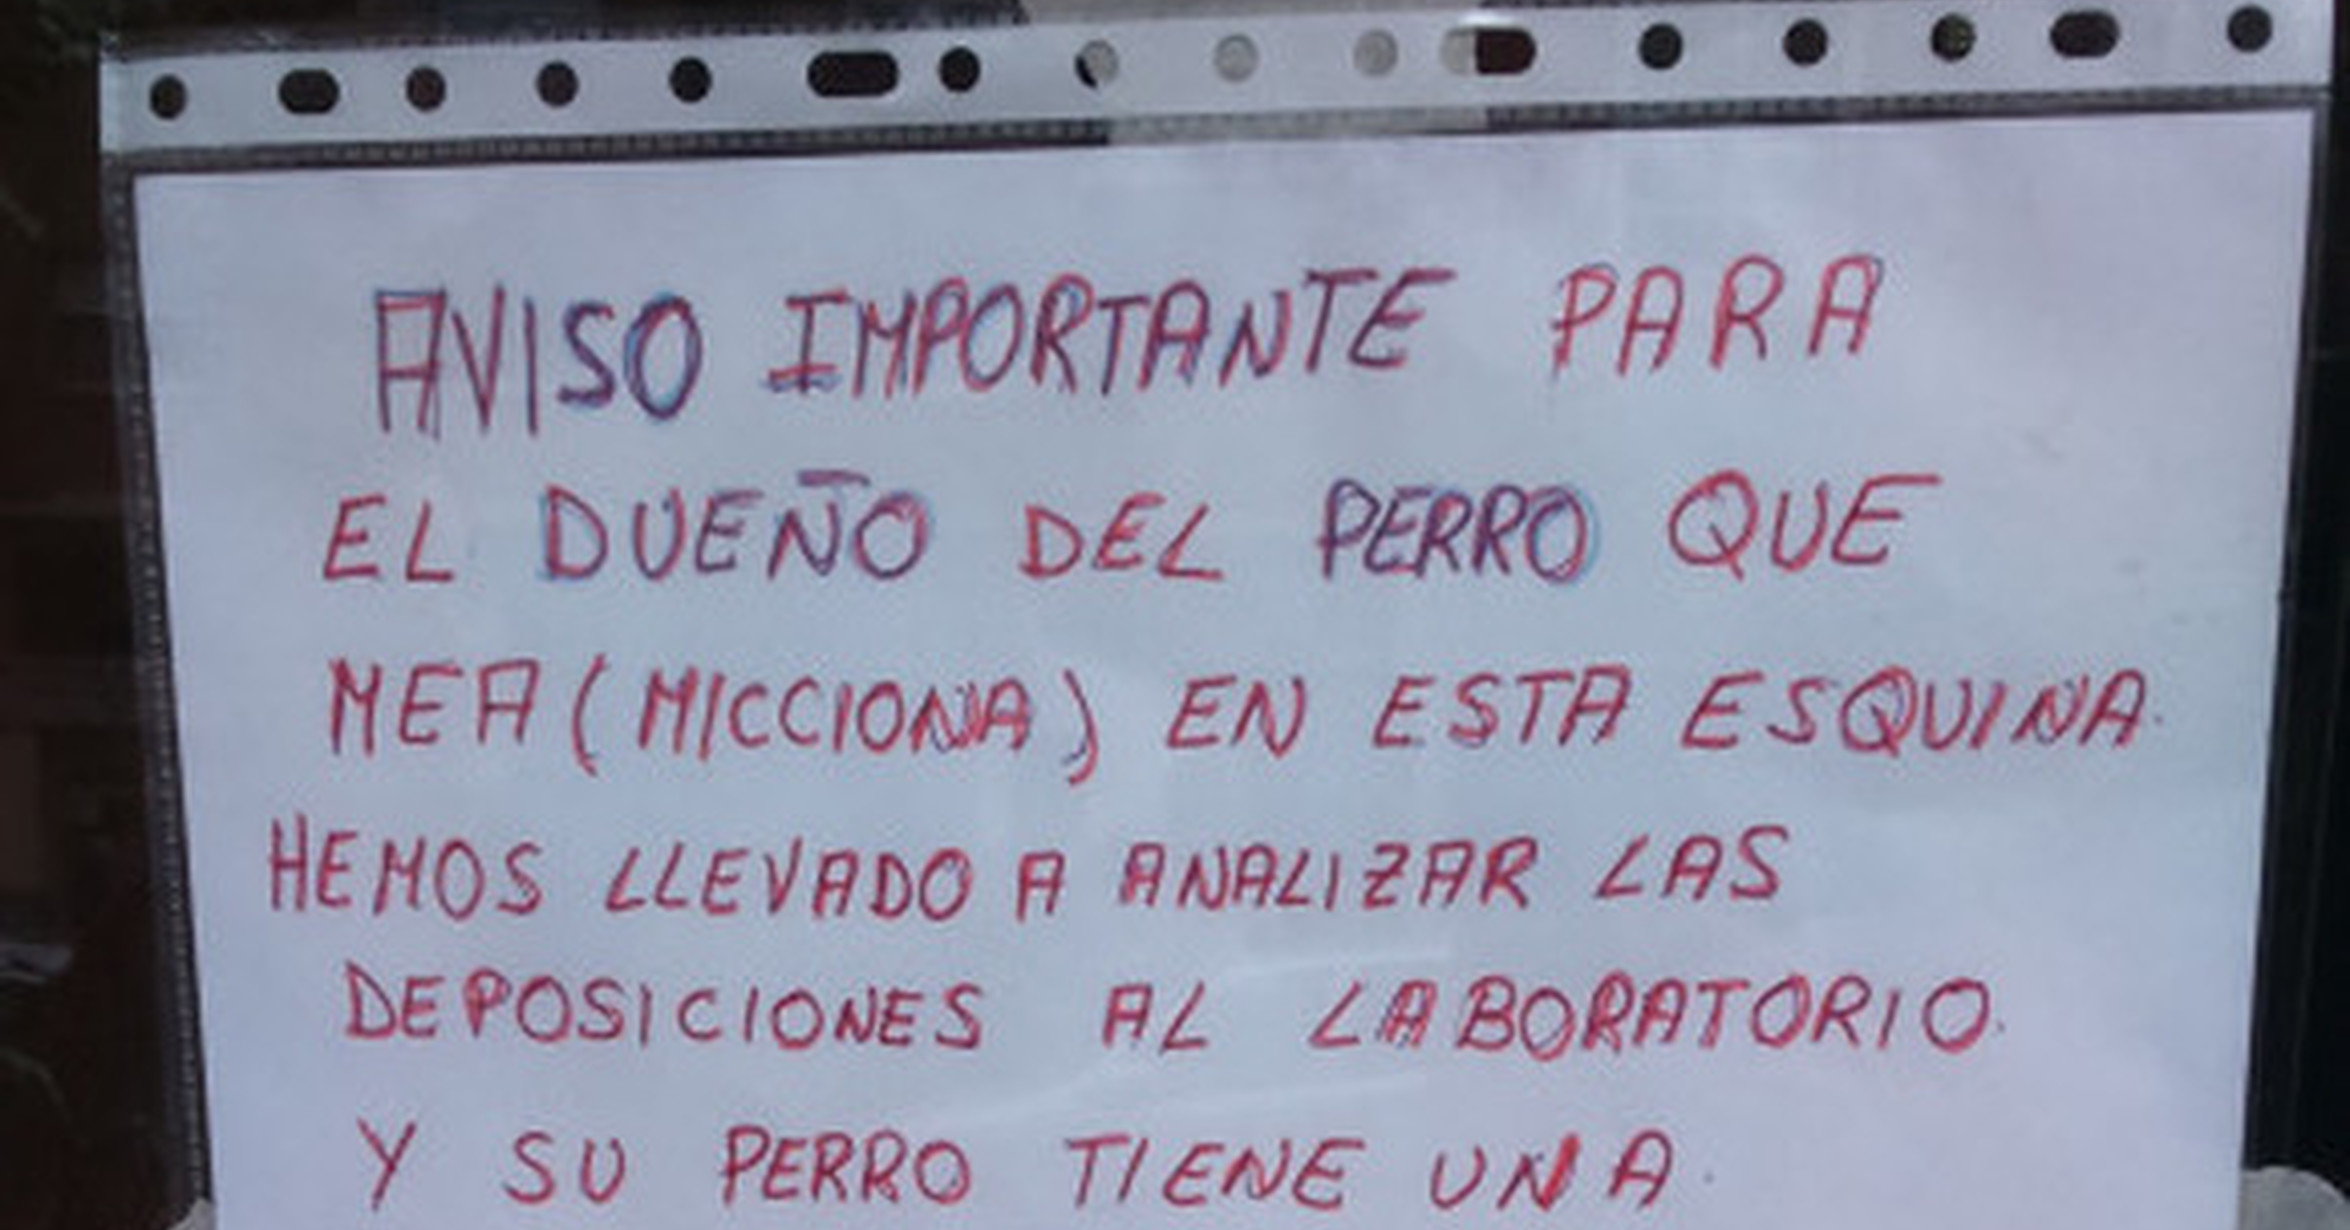 AVISO IMPORTANTE PARA
EL DUEÑO DEL PERRO QUE
MEA (MICCIONA) EN ESTA ESQUINA.
HEMOS LLEVADO A ANALIZAR LAS
DEPOSICIONES AL LABORATORIO.
Y SU PERRO TIENE UNA